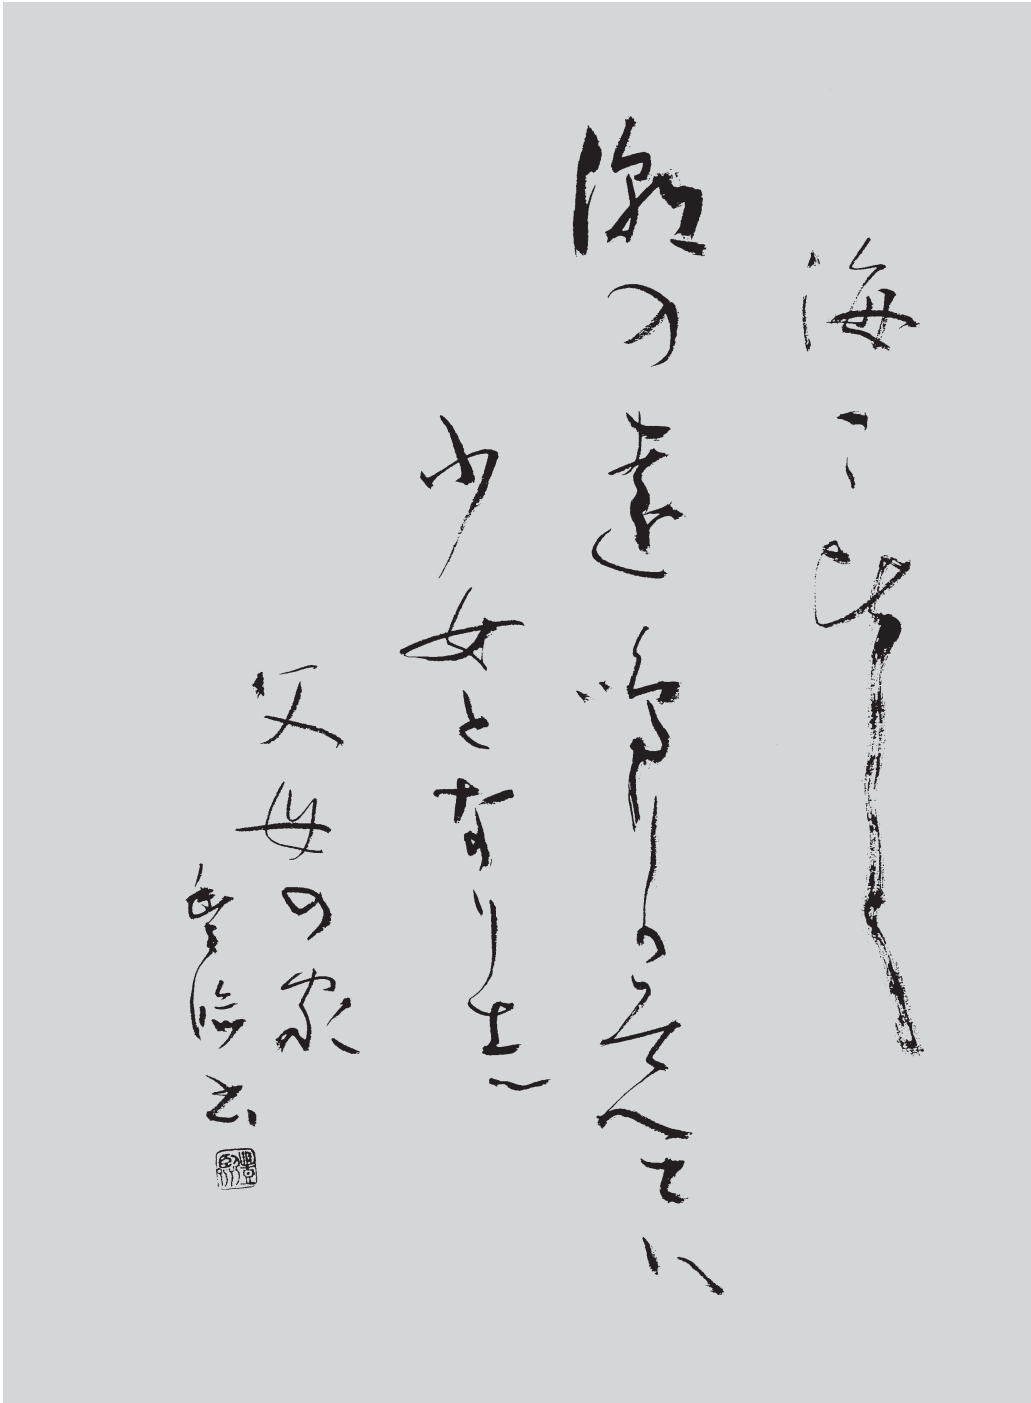 海こひし
潮の遠鳴りかそへては
少女となり志
父母の家
豊臨書